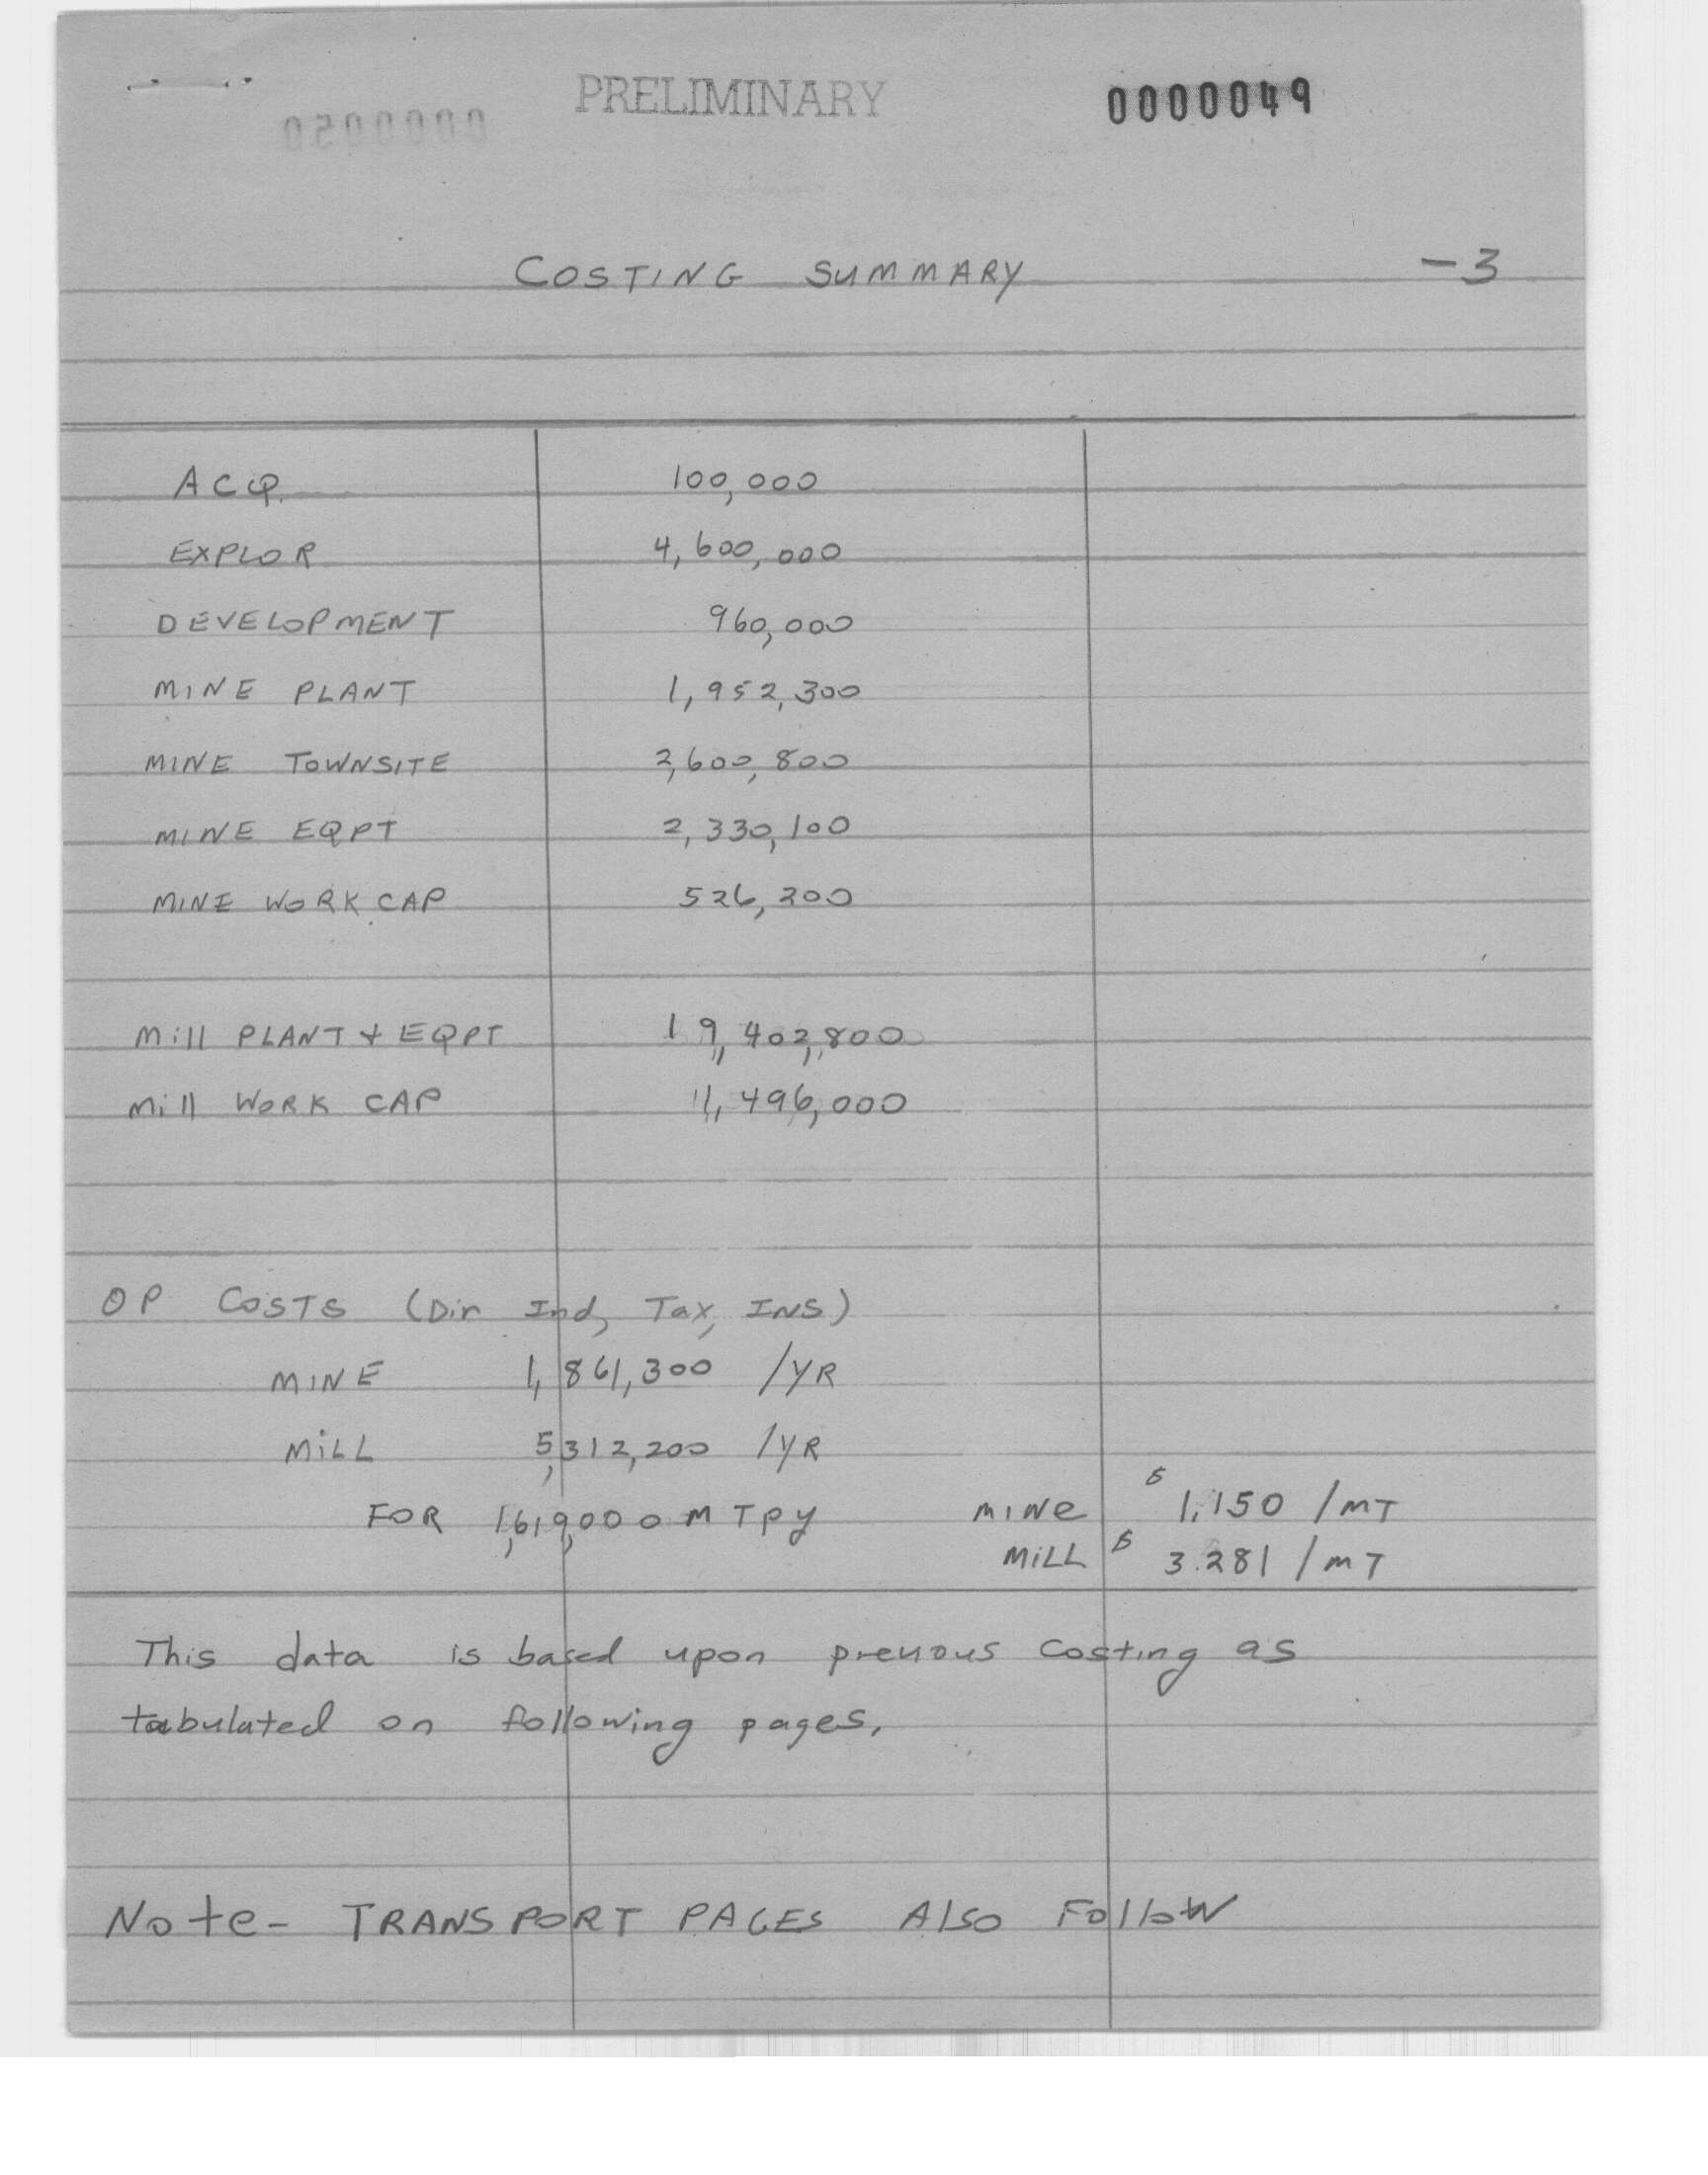 PRELIMINARY 0000049
0000050
COSTING SUMMARY -3
ACQ. 100,000
EXPLOR 4,600,000
DEVELOPMENT 960,000
MINE PLANT 1,952,300
MINE TOWNSITE 2,600,800
MINE EQPT 2,330,100
MINE WORK CAP 526,200
Mill PLANT + EQPT 19,402,800
Mill WORK CAP 1,496,000
OP COSTS (Dir Ind, Tax, INS)
MINE 1,861,300 /YR
MILL 5,312,200 /YR
FOR 1,619,000 MTPY MINE $ 1.150 /MT
MILL $ 3.281 /MT
This data is based upon previous costing as
tabulated on following pages.
Note- TRANSPORT PAGES Also Follow